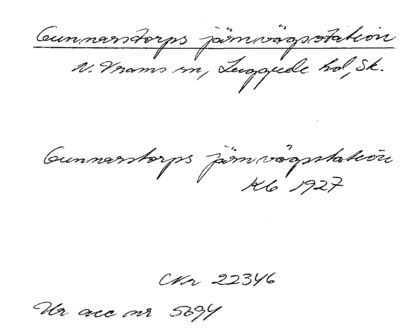 Gunnarstorps järnvägsstation
N. Vrams sn, Luggude hd, Sk.
Gunnarstorps järnvägsstation
Kb 1927
CNr 22346
Ur acc nr 5694